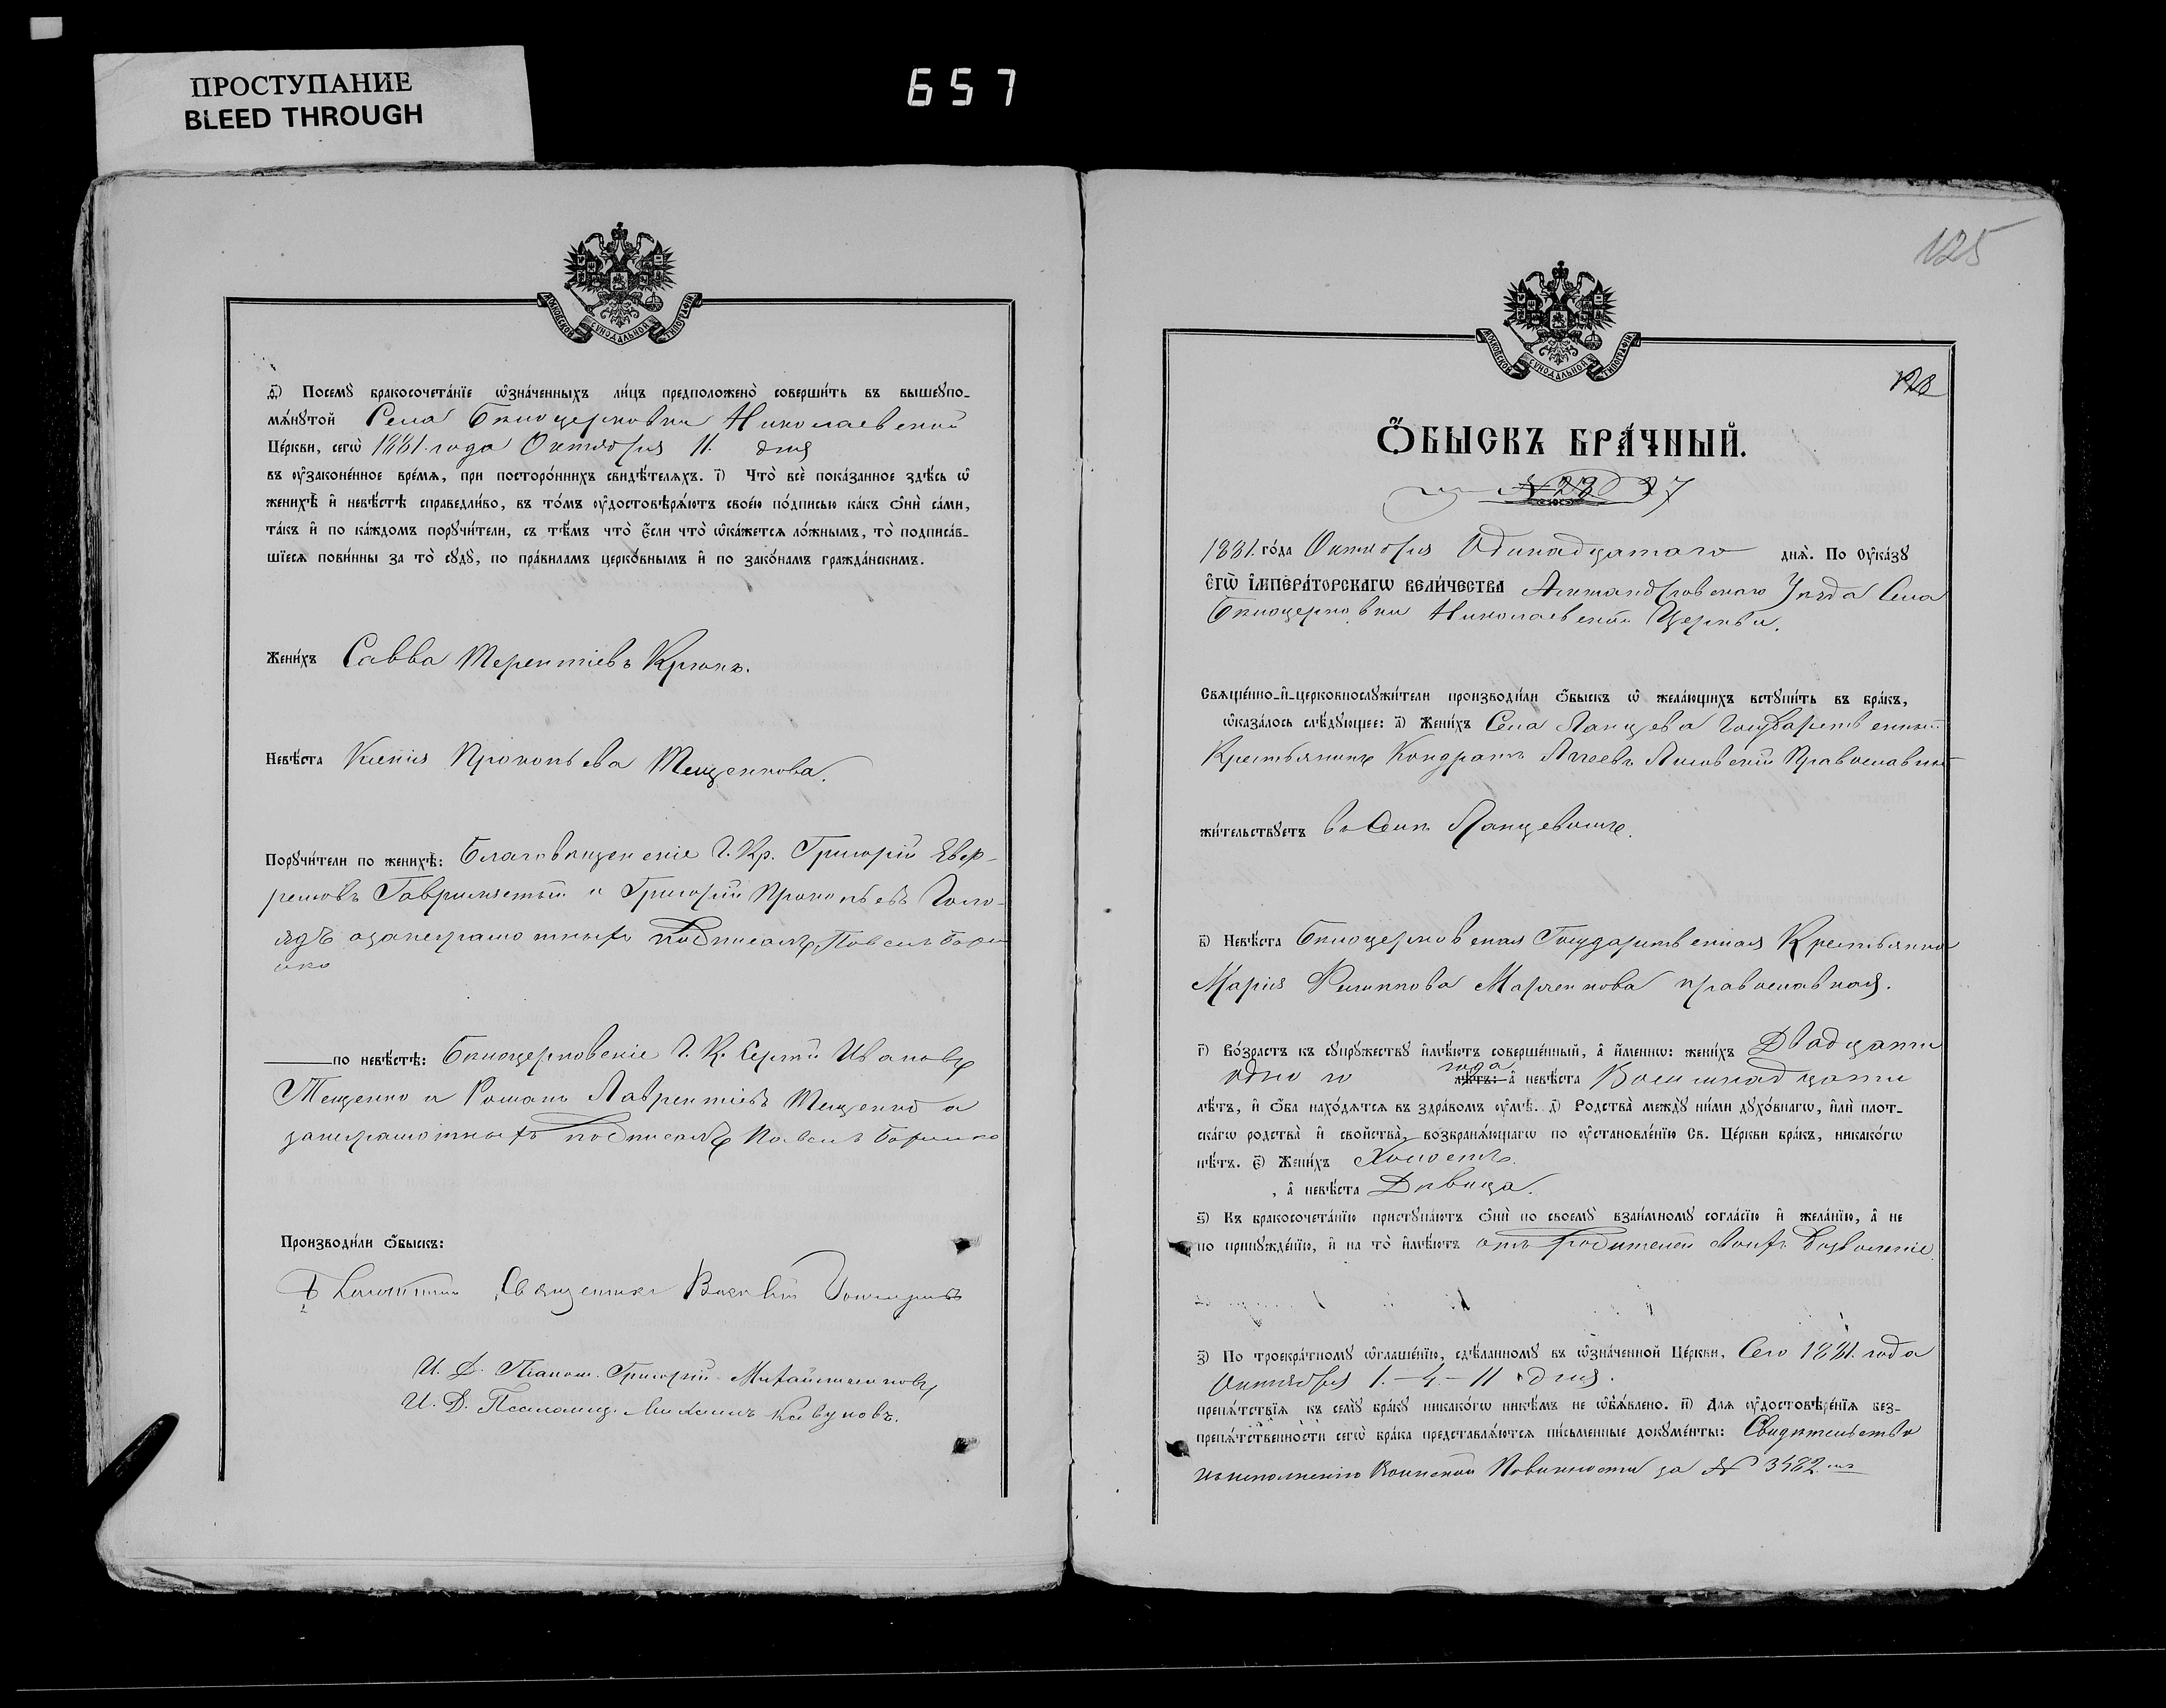 ПРОСТУПАНИЕ
BLEED THROUGH
657
МОСКОВСКОЙ СѴНОДАЛЬНОЙ ТИПОГРАФІИ
д҃) Посемꙋ̀ бракосочета́нїе ѡ҆зна́ченныхъ ли́цъ предположено̀ соверши́ть въ вышеꙋпо-
мѧ́нꙋтой Села Бѣлоцерковки Николаевской
Це́ркви, сегѡ̀ 1881. года Октября 11. дня
въ ᲂу҆законе́нное вре́мѧ, при посторо́ннихъ свидѣ́телѧхъ. і҃) Что̀ всѐ пока́занное здѣ́сь ѡ҆
женихѣ̀ и҆ невѣ́стѣ справедли́во, въ то́мъ ᲂу҆достовѣрѧ́ютъ свое́ю по́дписью ка́къ ѻ҆нѝ са́ми,
та́къ и҆ по ка́ждомъ порꙋчи́тели, съ тѣ́мъ что̀ є҆́сли что̀ ѡ҆ка́жетсѧ ло́жнымъ, то̀ подписа́в-
шїесѧ пови́нны за то̀ сꙋдꙋ̀, по пра́виламъ церко́внымъ и҆ по зако́намъ гражда́нскимъ.
Жени́хъ Савва Терентіевъ Крюкъ.
Невѣ́ста Ксенія Прокопьева Тещенкова.
Порꙋчи́тели по женихѣ̀: Благовѣщенскіе Г. Кр. Григорій
и Григорій Прокопьевъ
неграмотныхъ подписалъ Павелъ
по невѣ́стѣ: Бѣлоцерковскіе Г. К. Сергѣй Ивановъ
Тещенко и Романъ Лаврентіевъ Тещенко а
за неграмотныхъ подписалъ Павелъ
Производи́ли ѻ҆́быскъ:
Священникъ
И. Д. Григорій Михайличенковъ,
И. Д. Псаломщ. Михаилъ Кавуновъ.
125
МОСКОВСКОЙ СѴНОДАЛЬНОЙ ТИПОГРАФІИ
128
Ѻ҆́БЫСКЪ БРА́ЧНЫЙ.
27
1881. го́да Октября Одинадцатаго днѧ̀. По Оу҆ка́зꙋ
Е҆гѡ̀ І҆мпера́торскагѡ Вели́чества Александровскаго Уѣзда Села
Бѣлоцерковки Николаевской Церкви.
Свѧще́нно-и҆-церковнослꙋжи́тели производи́ли ѻ҆́быскъ ѡ҆ жела́ющихъ встꙋпи́ть въ бра́къ,
ѡ҆каза́лось слѣ́дꙋющее: а҃) Жени́хъ Села Ланцева Государственный
Крестьянинъ Кондратъ Аггеевъ Православный
жи́тельствꙋетъ въ Селѣ Ланцевомъ.
в҃) Невѣ́ста Бѣлоцерковская Государственная Крестьянка
Марія Филиппова Марченкова православная.
г҃) Во́зрастъ къ сꙋпрꙋ́жествꙋ и҆мѣ́ютъ соверше́нный, а҆ и҆́меннѡ: жени́хъ Двадцати
одного года лѣ́тъ: а҆ невѣ́ста Восемнадцати
лѣ́тъ, и҆ ѻ҆́ба нахо́дѧтсѧ въ здра́вомъ ᲂу҆мѣ̀. д҃) Родства̀ междꙋ̀ ни́ми дꙋхо́внагѡ, и҆лѝ плот-
ска́гѡ родства̀ и҆ свойства̀, возбранѧ́ющагѡ по ᲂу҆становле́нїю Св. Це́ркви бра́къ, никако́гѡ
нѣ́тъ. є҃) Жени́хъ Холостъ.
, а҆ невѣ́ста Дѣвица.
ѕ҃) Къ бракосочета́нїю пристꙋпа́ютъ ѻ҆нѝ по своемꙋ̀ взаи́мномꙋ согла́сїю и҆ жела́нїю, а҆ не
по принꙋжде́нїю, и҆ на то̀ и҆мѣ́ютъ отъ родителей своихъ дозволеніе
з҃) По троекра́тномꙋ ѡ҆глаше́нїю, сдѣ́ланномꙋ въ ѡ҆зна́ченной Це́ркви, Сего 1881. года
Октября 1. – 4. – 11 дня.
препѧ́тствїѧ къ семꙋ̀ бра́кꙋ никако́гѡ никѣ́мъ не ѡ҆б̾ѧ́влено. и҃) Длѧ ᲂу҆достовѣре́нїѧ без-
препѧ́тственности сегѡ̀ бра́ка представлѧ́ютсѧ пи́сьменные докꙋме́нты: Свидѣтельство
по исполненію Воинской Повинности за № 3482